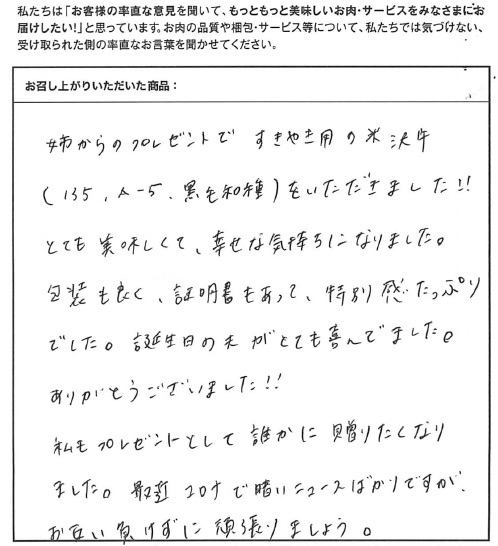 私たちは「お客様の率直な意見を聞いて、もっともっと美味しいお肉・サービスをみなさまにお
届けしたい!」と思っています。お肉の品質や梱包・サービス等について、私たちでは気づけない、
受け取られた側の率直なお言葉を聞かせてください。
お召し上がりいただいた商品：
姉からのプレゼントで すきやき用の米沢牛
(135、A-5、黒毛和種)をいただきました!!
とても美味しくて、幸せな気持ちになりました。
包装も良く、証明書もあって、特別感たっぷり
でした。誕生日の夫がとても喜んでました。
ありがとうございました!!
私もプレゼントとして誰かに贈りたくなり
ました。最近コロナで暗いニュースばかりですが、
お互い負けずに頑張りましょう。